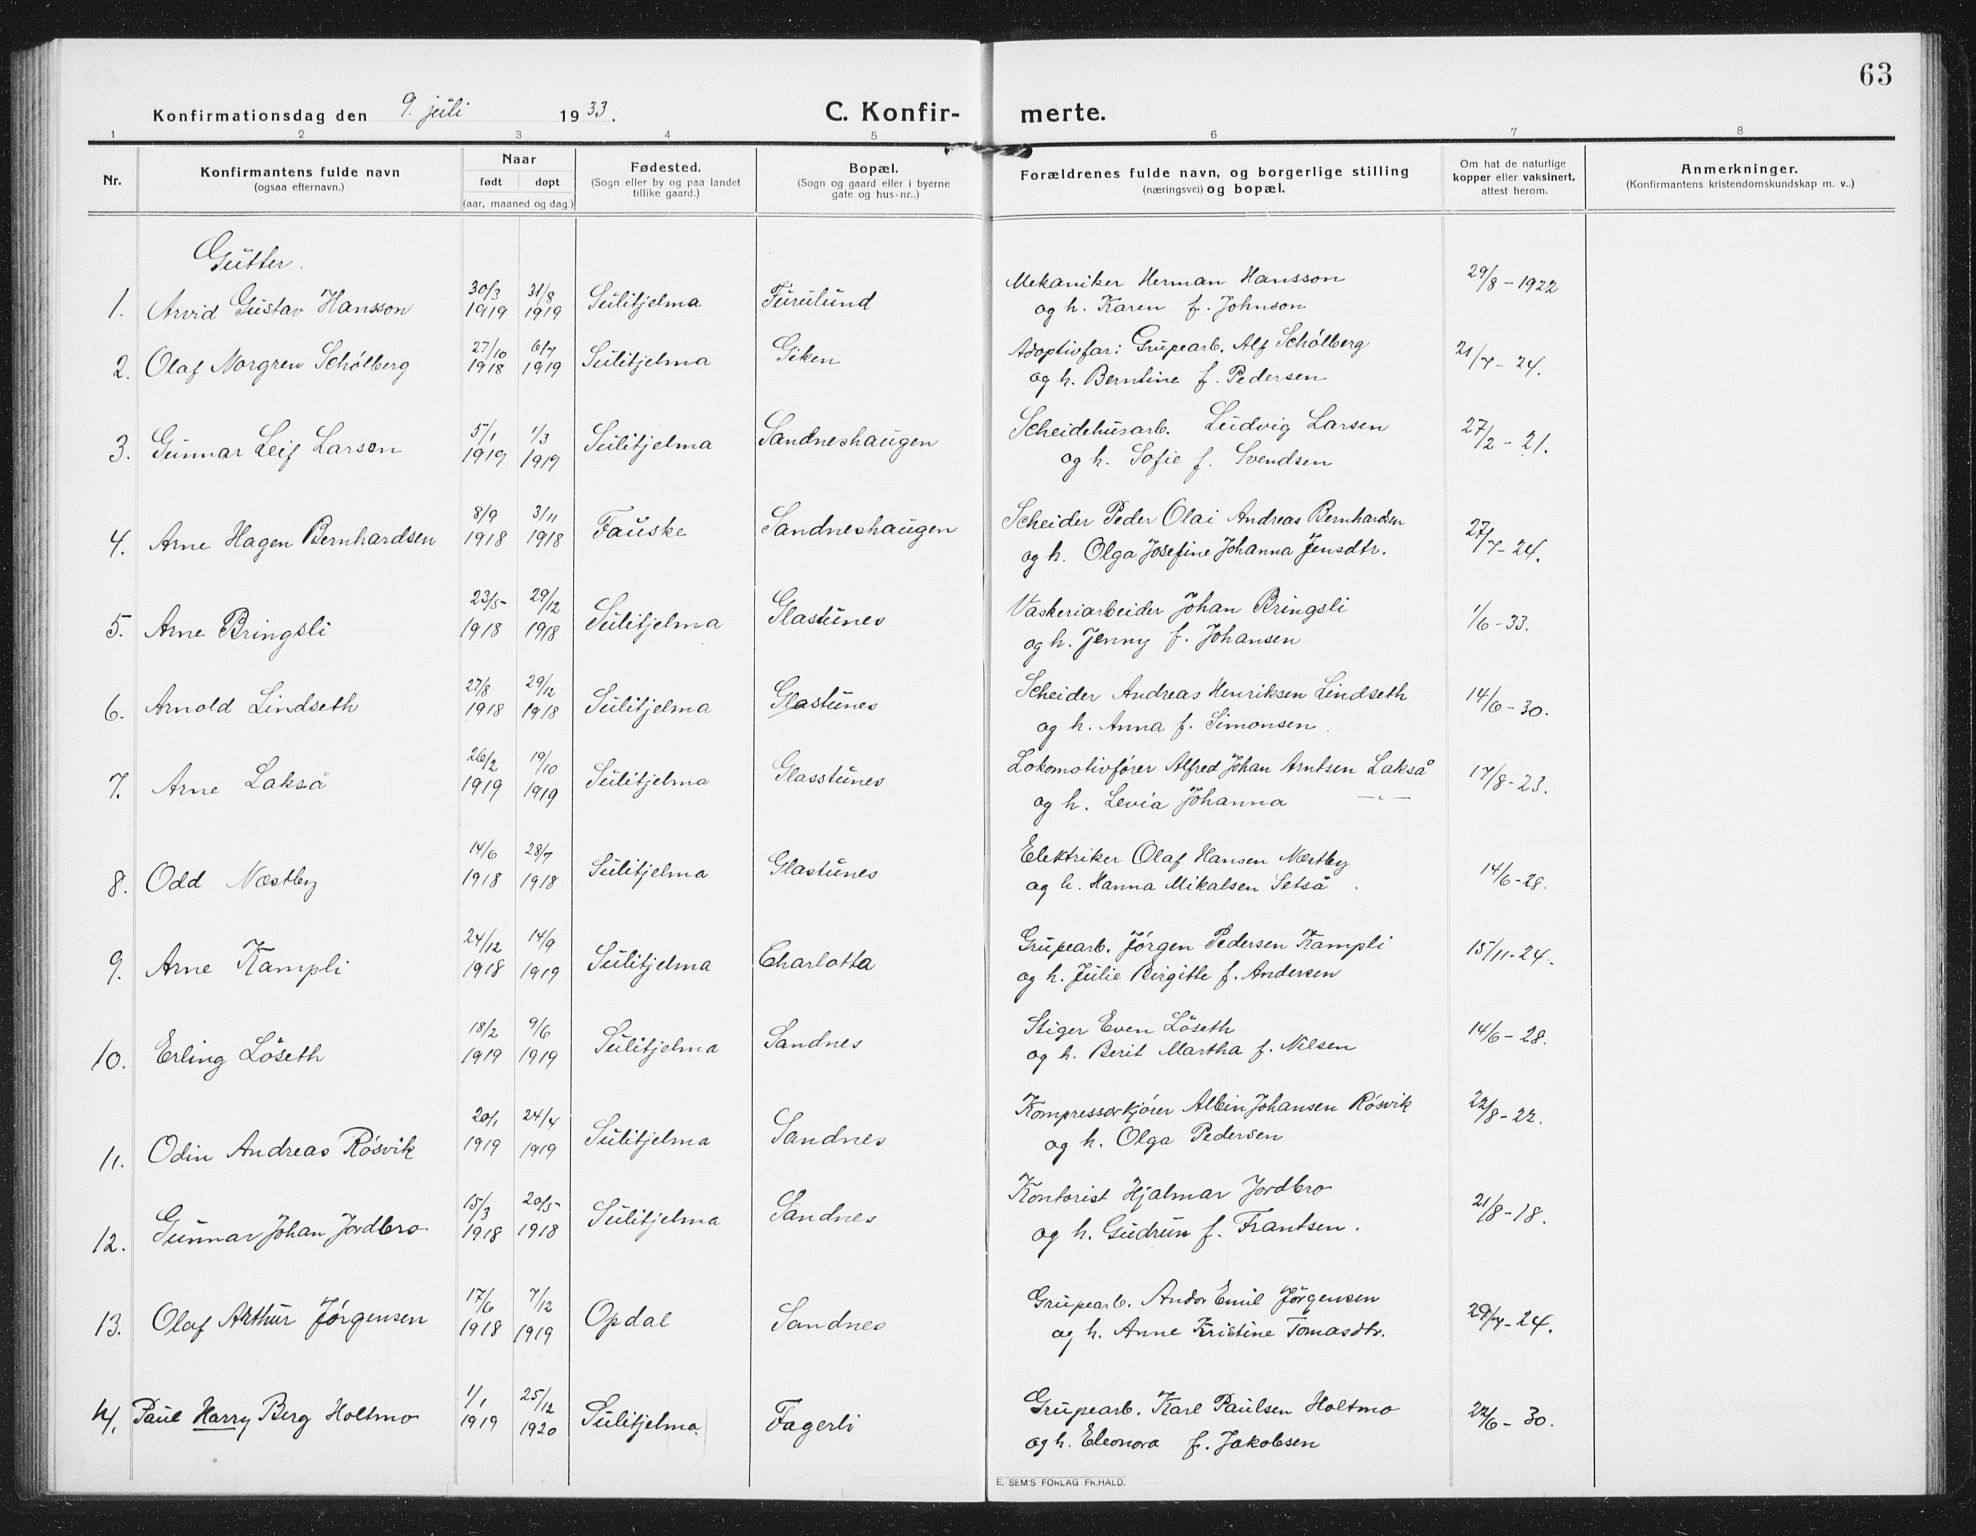 63
Konfirmationsdag den 9. juli 1933. C. Konfir- merte.
1 2 3 4 5 6 7 8
Nr. Konfirmantens fulde navn (ogsaa efternavn.) Naar født døpt (aar, maaned og dag.) Fødested. (Sogn eller by og paa landet tillike gaard.) Bopæl. (Sogn og gaard eller i byerne gate og hus-nr..) Forældrenes fulde navn, og borgerlige stilling (næringsvei) og bopæl. Om hat de naturlige kopper eller vaksinert, attest herom. Anmerkninger. (Konfirmantens kristendomskundskap m. v..)
Gutter.
1. Arvid Gustav Hansson 30/3 1919 31/8 1919 Sulitjelma Furulund Mekaniker Herman Hansson 29/8 - 1922
og h. Karen f. Johnson
2. Olaf Norgren Schólberg 27/10 1918 6/7 1919 Sulitjelma Giken Adoptivfar: Grupearb. Alf Schólberg 21/7 - 24.
og h. Berntine f. Pedersen
3. Gunnar Leif Larsen 5/1 1919 1/3 1919 Sulitjelma Sandneshaugen Scheidehusarb. Ludvig Larsen 27/2 - 21.
og h. Sofie f. Svendsen
4. Arne Hagen Bernhardsen 8/9 1918 3/11 1918 Fauske Sandneshaugen Scheider Peder Olai Andreas Bernhardsen 27/7 - 24.
og h. Olga Josefine Johanna Jensdtr.
5. Arne Bringsli 23/5 1918 29/12 1918 Sulitjelma Glastunes Vaskeriarbeider Johan Bringsli 1/6 - 33.
og h. Jenny f. Johansen
6. Arnold Lindseth 27/8 1918 29/12 1918 Sulitjelma Glastunes Scheider Andreas Henriksen Lindseth 14/6 - 30.
og h. Anna f. Simonsen.
7. Arne Lakså 26/2 1919 19/10 1919 Sulitjelma Glasstunes Lokomotivfører Alfred Johan Arntsen Lakså 17/8 - 23.
og h. Levia Johanna — " —
8. Odd Næstby 14/6 1918 28/7 1918 Sulitjelma Glastunes Elektriker Olaf Hansen Næstby 14/6 - 28.
og h. Hanna Mikalsen Setså.
9. Arne Kampli 24/12 1918 14/9 1919 Sulitjelma Charlotta Grupearb. Jórgen Pedersen Kampli 15/11 - 24.
og h. Julie Birgitte f. Andersen
10. Erling Löseth 18/2 1919 9/6 1919 Sulitjelma Sandnes Stiger Even Löseth 14/6 - 28.
og h. Berit Martha f. Nilsen
11. Odin Andreas Rósvik 20/1 1919 24/4 1919 Sulitjelma Sandnes Kompressorkjórer Albin Johansen Rósvik 22/8 - 22.
og h. Olga Pedersen
12. Gunnar Johan Jordbro 15/3 1918 20/5 1918 Sulitjelma Sandnes Kontorist Hjalmar Jordbro 21/8 - 18.
og h. Gudrun f. Frantsen.
13. Olaf Arthur Jórgensen 17/6 1918 7/12 1919 Opdal Sandnes Grupearb. Andor Emil Jórgensen 29/7 - 24.
og h. Anne Kristine Tomasdtr.
14. Paul Harry Berg Holtmo 1/1 1919 25/12 1920 Sulitjelma. Fagerli Grupearb. Karl Paulsen Holtmo 22/6 - 30.
og h. Eleonora f. Jakobsen
E. SEM'S FORLAG FR.HALD.